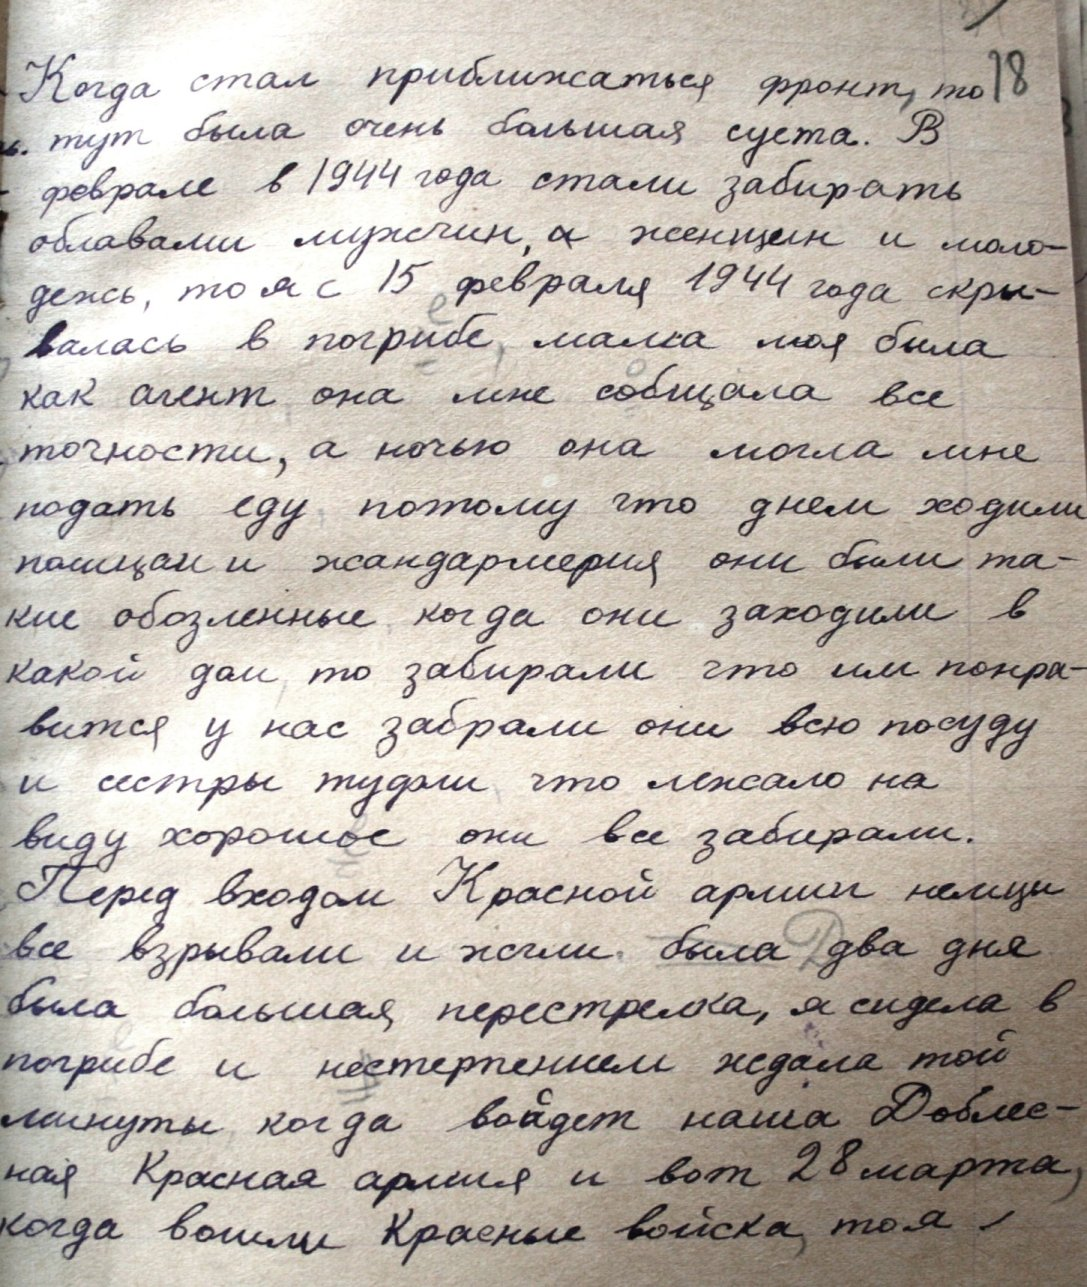 18
Когда стал приближаться фронт, то
тут была очень большая суета. В
феврале в 1944 года стали забирать
облавами мужчин, а женщин и моло-
дежь, то я с 15 февраля 1944 года скры-
валась в погрибе, мамка моя была
как агент она мне собщала все
точности, а ночью она могла мне
подать еду потому что днем ходили
полицаи и жандармерия они были та-
кие обозленные когда они заходили в
какой дом то забирали что им понра-
вится у нас забрали они всю посуду
и сестры туфли что лежало на
виду хорошое они все забирали.
Перед входом Красной армии немци
все взрывали и жгли. была два дня
была большая перестрелка, я сидела в
погрибе и нестерпением ждала той
минуты когда войдет наша Доблес-
ная Красная армия и вот 28 марта,
когда вошли Красные войска, то я